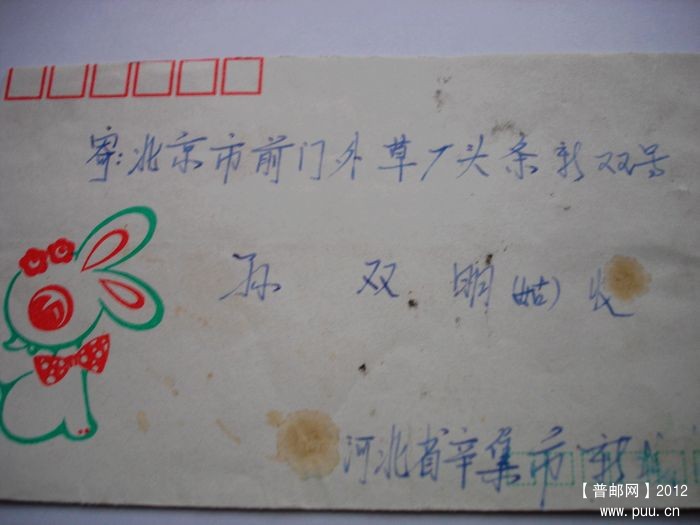 寄:北京市前门外草厂头条新双号
孙双明(姑)收
河北省辛集市新
【普邮网】2012
www.puu.cn